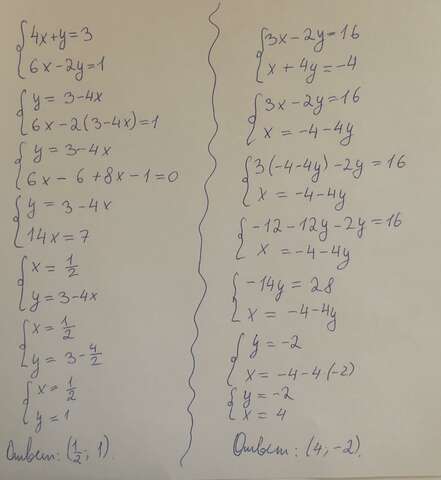 4x+y=3
6x-2y=1
y = 3-4x
6x-2(3-4x)=1
y = 3-4x
6x-6+8x-1=0
y = 3-4x
14x=7
x = 1/2
y=3-4x
x = 1/2
y = 3-4/2
x = 1/2
y = 1
Ответ: (1/2; 1).
3x-2y=16
x+4y=-4
3x-2y=16
x = -4-4y
3(-4-4y)-2y=16
x = -4-4y
-12-12y-2y=16
x = -4-4y
-14y=28
x = -4-4y
y = -2
x = -4-4·(-2)
y = -2
x = 4
Ответ: (4; -2).